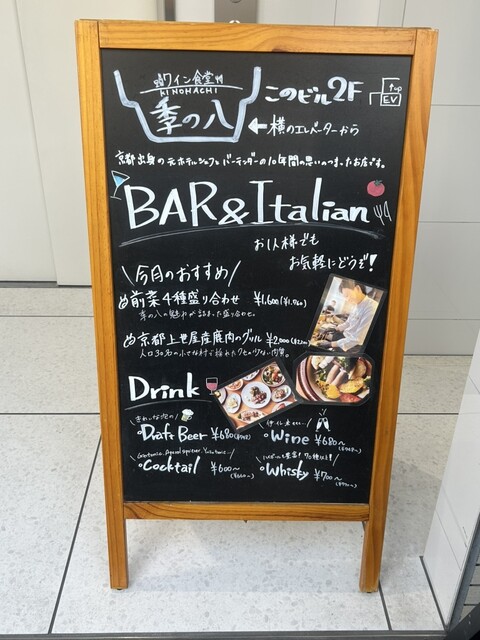 ワイン食堂
KINOHACHI
季の八
このビル2F
up
EV
←横のエレベーターから
京都出身の元ホテルシェフとバーテンダーの10年間の思いのつまったお店です。
BAR&Italian
お1人様でも
お気軽にどうぞ!
\今月のおすすめ/
前菜4種盛り合わせ ¥1,600(¥1,760)
季の八の魅力が詰まった盛り合せ。
京都上世屋産鹿肉のグリル ¥2,000(¥2,200)
人口30名の小さな村で採れたクセの少ない肉質。
Drink
きれいな泡の
Draft Beer ¥680(¥748)
Wine ¥680~
(¥748~)
Cocktail ¥600~
(¥660~)
Whisky ¥700~
(¥770~)